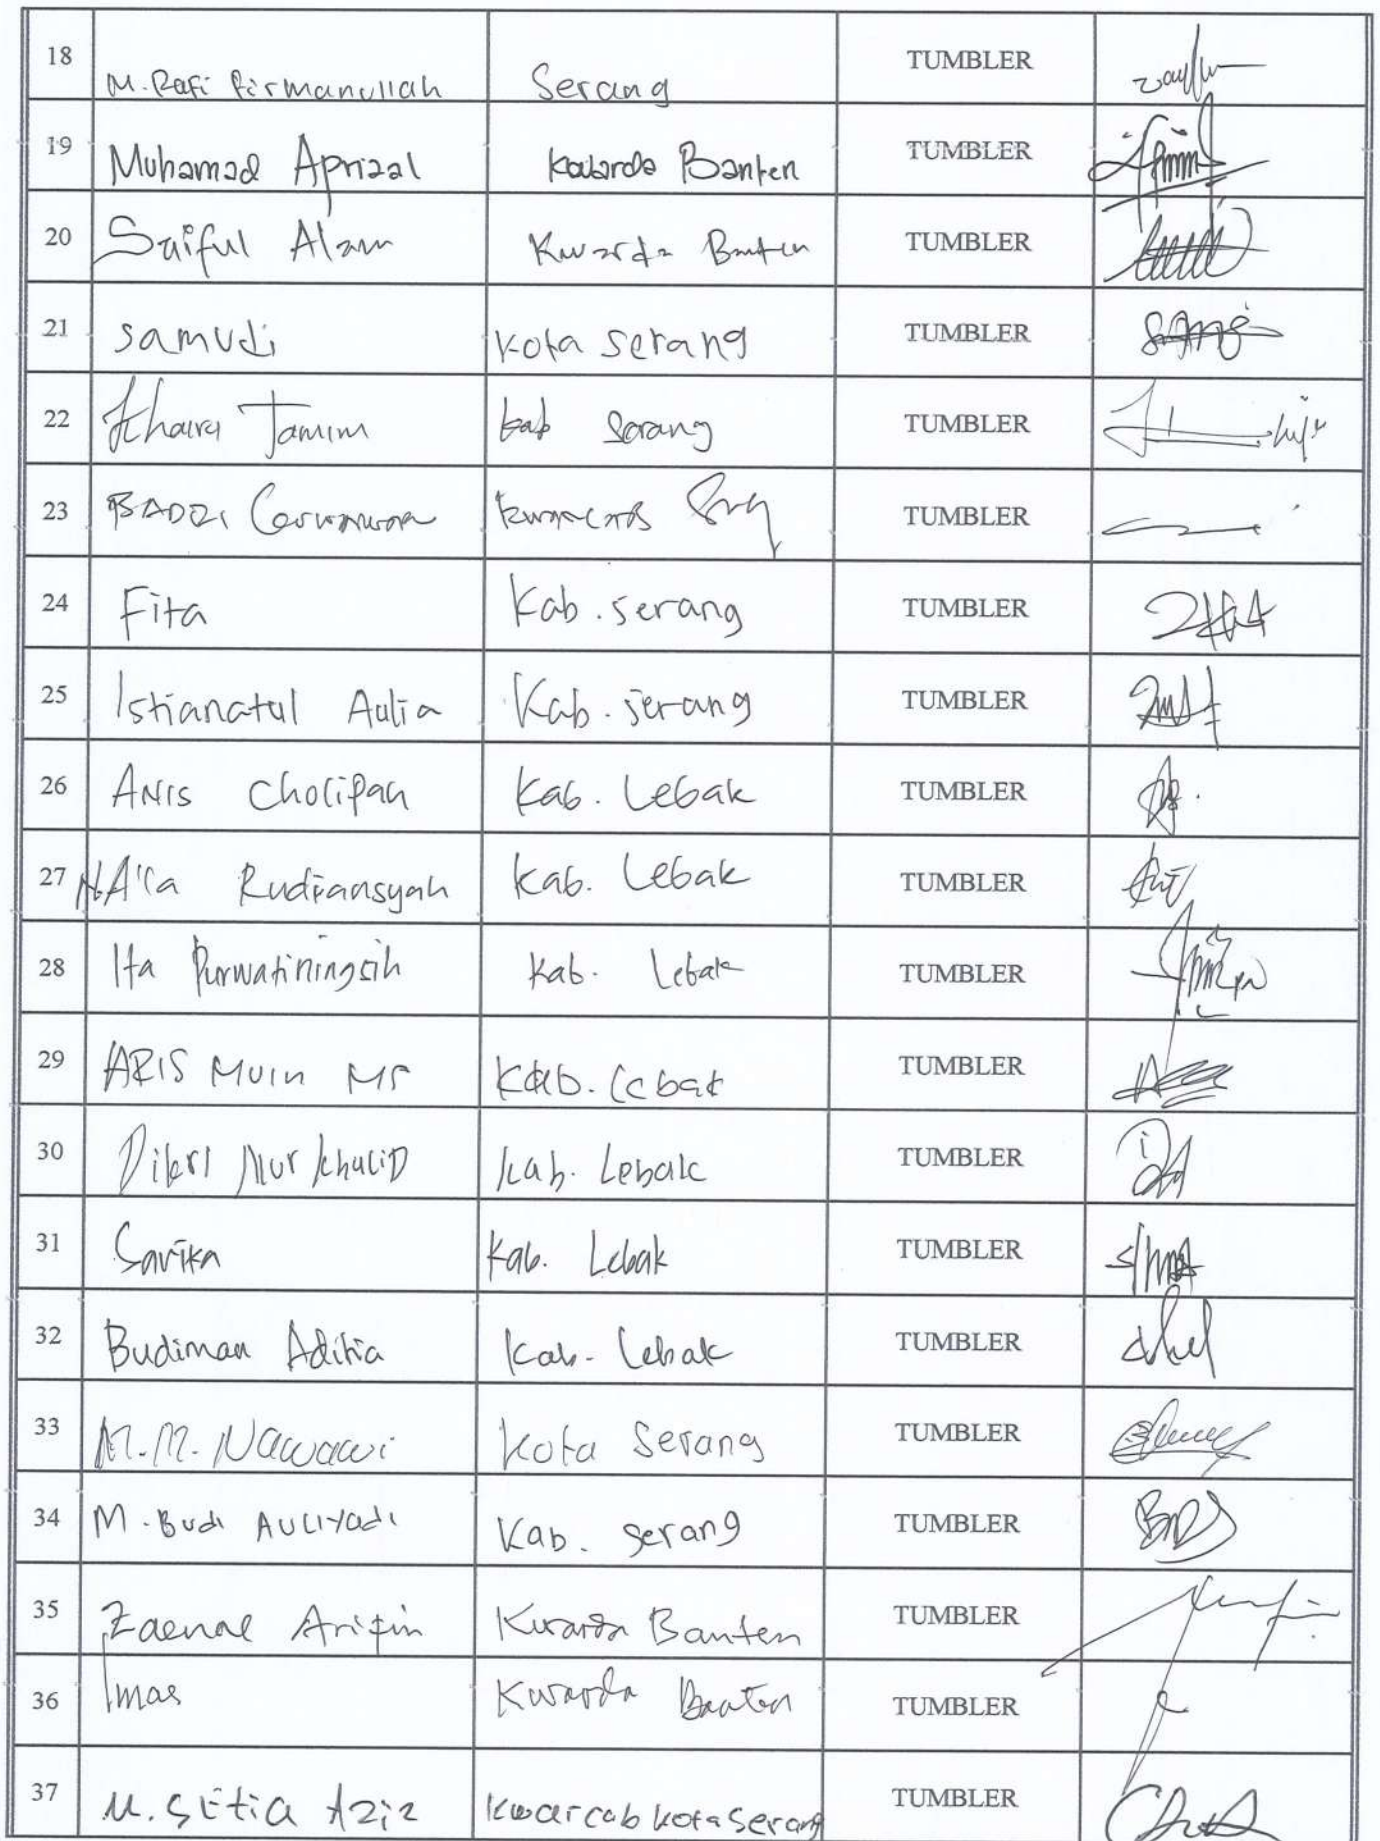 18 M. Rafi Firmanullah Serang TUMBLER
19 Muhamad Aprizal Kwarda Banten TUMBLER
20 Saiful Alam Kwarda Banten TUMBLER
21 Samudi Kota Serang TUMBLER
22 Tamim kab Serang TUMBLER
23 TUMBLER
24 Fita Kab. Serang TUMBLER
25 Istianatul Aulia Kab. Serang TUMBLER
26 ANIS Cholipah Kab. Lebak TUMBLER
27 Rudiansyah Kab. Lebak TUMBLER
28 Ita Purwatiningsih Kab. Lebak TUMBLER
29 ARIS MUIN Kab. Lebak TUMBLER
30 Dikri Nur Khulid Kab. Lebak TUMBLER
31 Savika Kab. Lebak TUMBLER
32 Budiman Aditia Kab. Lebak TUMBLER
33 M. M. Nawawi Kota Serang TUMBLER
34 M. Budi AULIYadi Kab. Serang TUMBLER
35 Zaenal Arifin Kwarda Banten TUMBLER
36 Imas Kwarda Banten TUMBLER
37 M. Setia Aziz Kwarcab Kota Serang TUMBLER